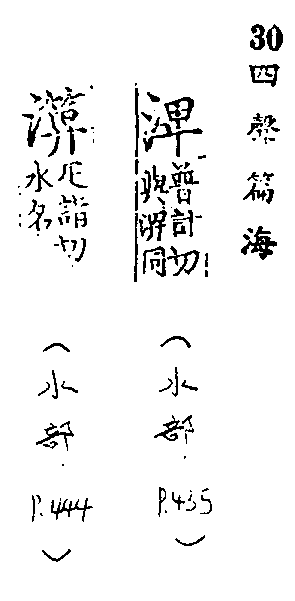 30 四聲篇海
渒 普計切
與淠同
(水部 P.435)
匹詣切
水名
(水部 P.444)